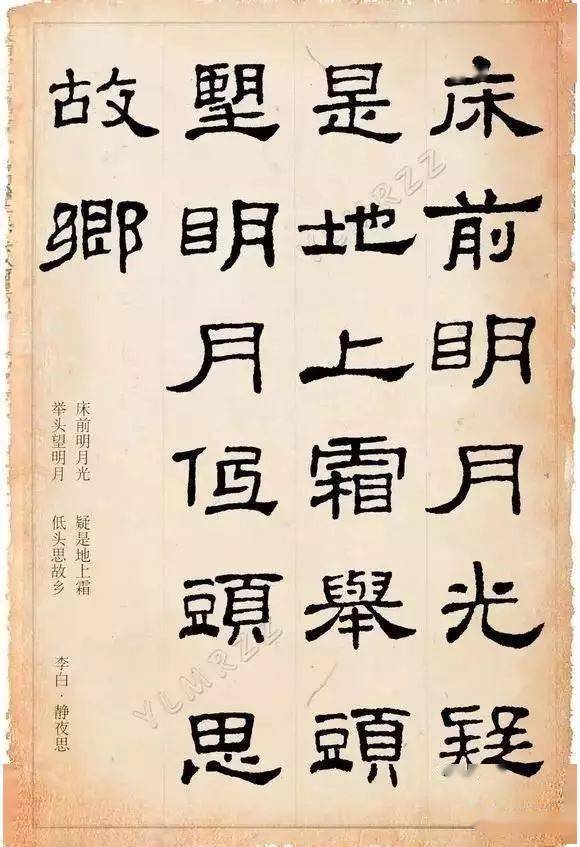 床前明月光疑
是地上霜舉頭
望明月低頭思
故鄉
床前明月光　疑是地上霜
举头望明月　低头思故乡
李白·静夜思
YLMRZZ
YLMRZZ